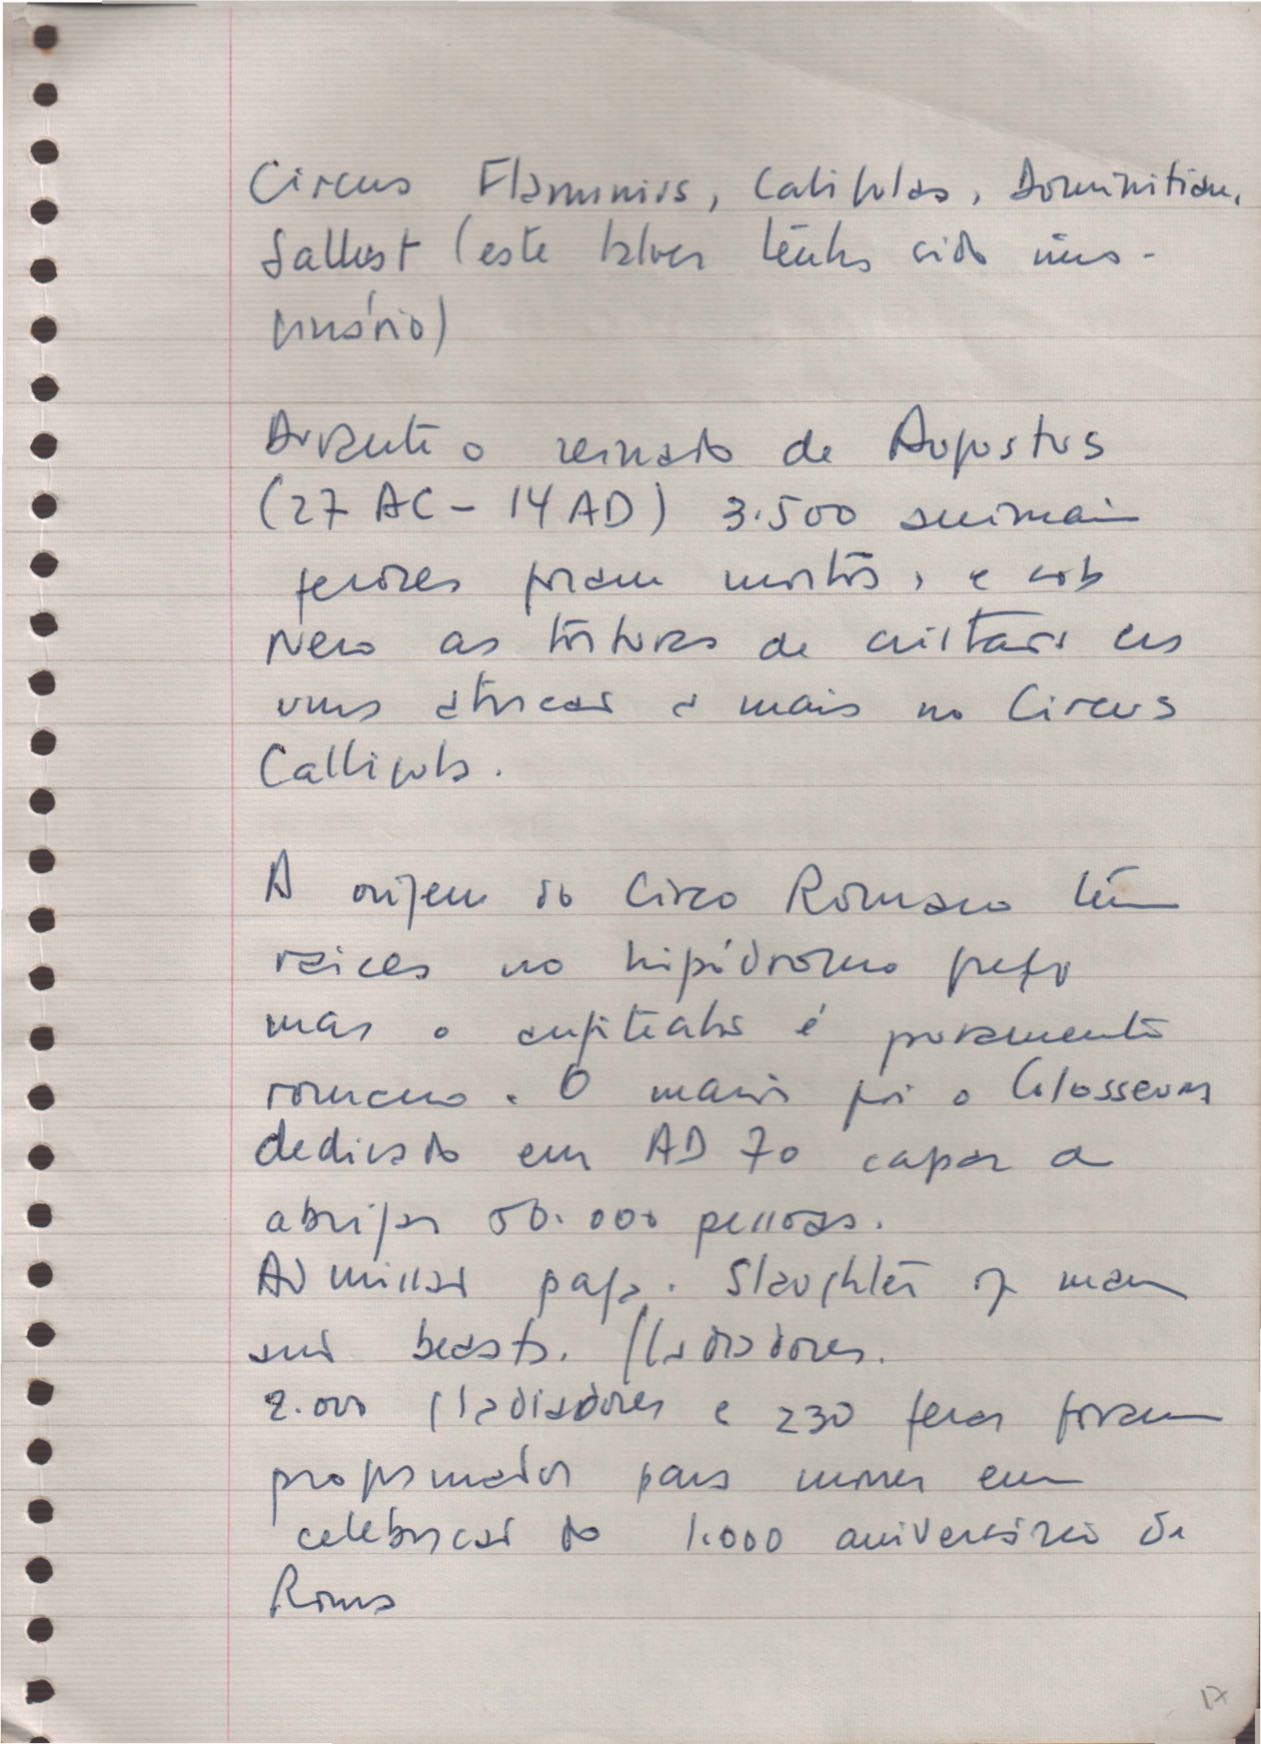 Circus Flaminius, Caligulas, Dominitian,
Sallust (este talvez tenha sido ima-
ginário)
Durante o reinado de Augustus
(27 AC - 14 AD) 3.500 animais
ferozes foram mortos, e sob
Nero as torturas de cristãos era
uma atracão a mais no Circus
Calligula.
A origem do Circo Romano têm
raices no hipódromo grego
mas o anfiteatro é puramente
romano. O maior foi o Colosseum
dedicado em AD 70 capaz a
abrigar 50.000 pessoas.
Admissão paga. Slaughter of man
and beasts. Gladiadores.
2.000 gladiadores e 230 feras foram
programados para morrer em
celebracão do 1.000 aniversário de
Roma
17